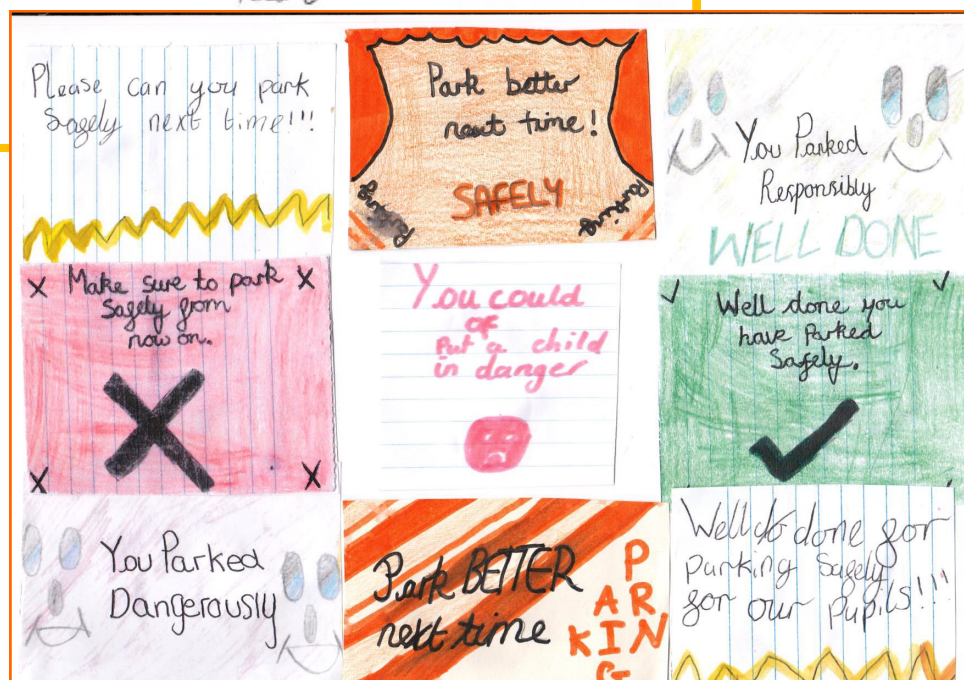 Please can you park
Safely next time!!!
Park better
next time!
SAFELY
Parking
Parking
You Parked
Responsibly
WELL DONE
Make sure to park
Safely from
now on.
You could
of
Put a child
in danger
Well done you
have Parked
Safely.
You Parked
Dangerously
Park BETTER
next time
PARKING
Well do done for
parking Safely
for our Pupils!!!